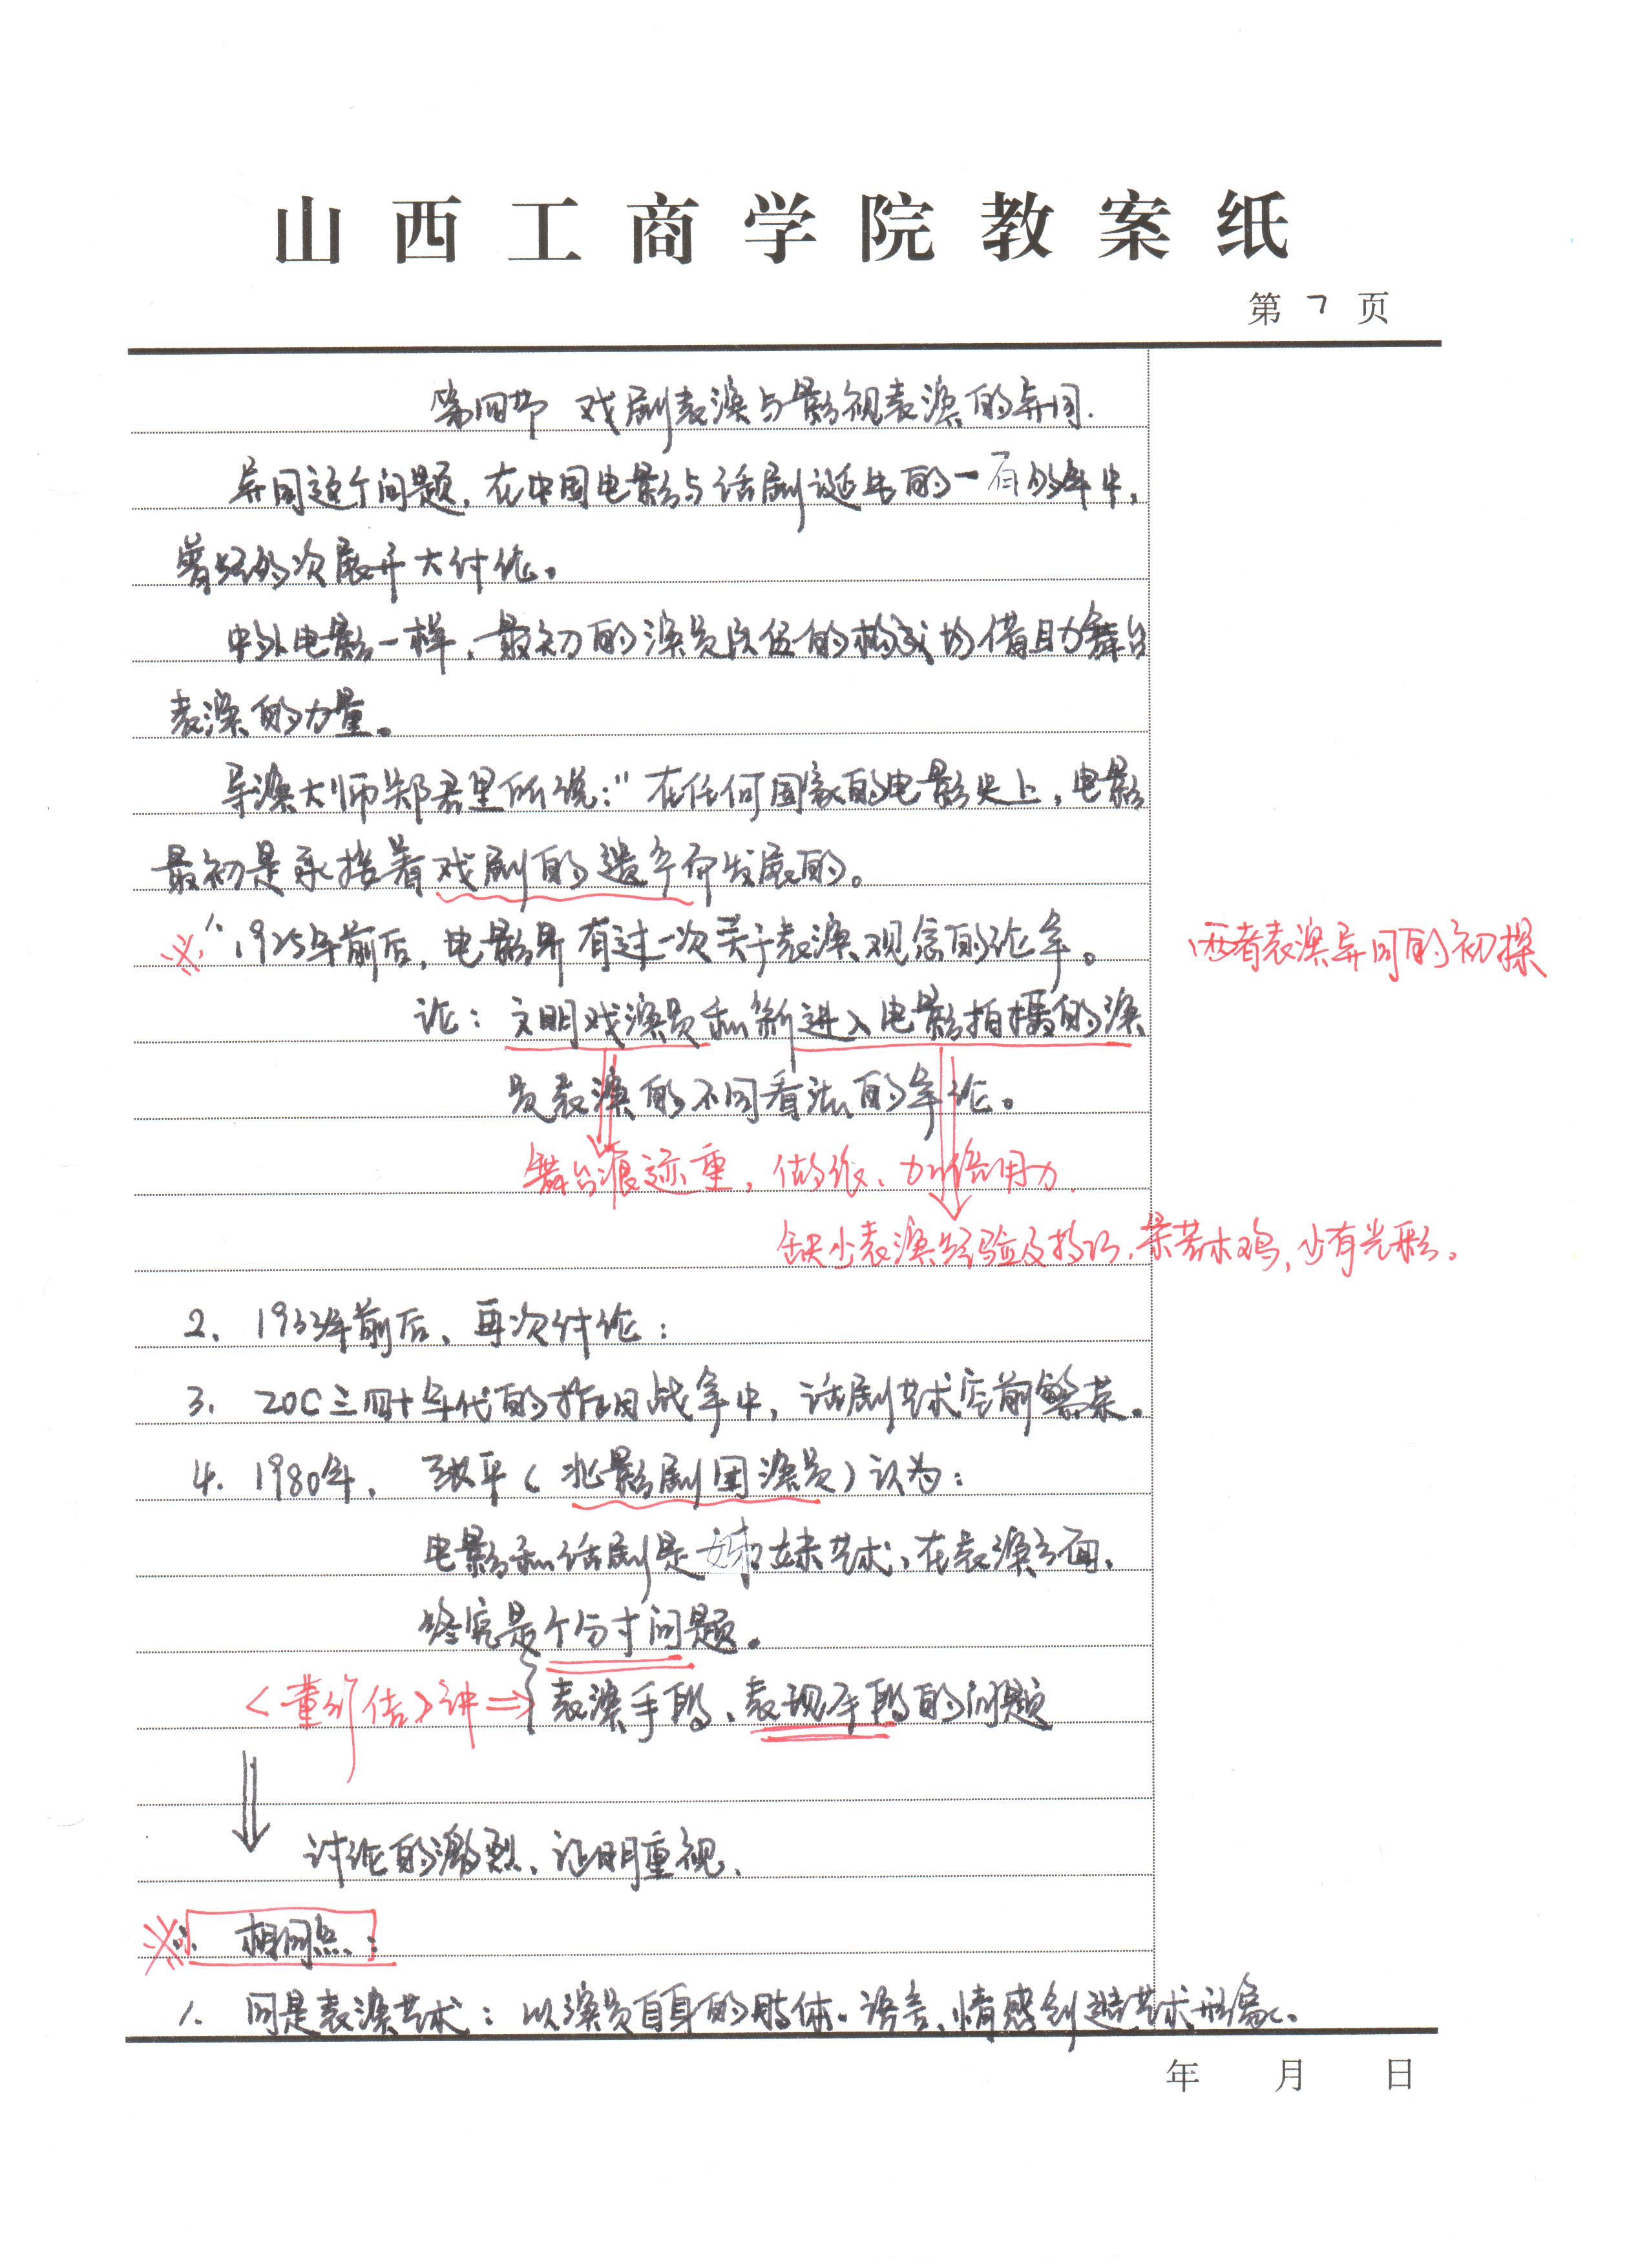 山西工商学院教案纸
第 7 页
第四节 戏剧表演与影视表演的异同.
异同这个问题,在中国电影与话剧诞生的一百多年中,
曾经多次展开大讨论。
中外电影一样,最初的演员队伍的构成均借助舞台
表演的力量。
导演大师郑君里所说:"在任何国家的电影史上,电影
最初是承接着戏剧的遗产而发展的。
※ 1、1925年前后,电影界有过一次关于表演观念的论争。
两者表演异同的初探
论:文明戏演员和新进入电影拍摄的演
员表演的不同看法的争论。
舞台痕迹重,做作、加倍用力.
缺少表演经验及技巧,呆若木鸡,少有光彩。
2、1933年前后、再次讨论:
3、20C三四十年代的抗日战争中,话剧艺术空前繁荣。
4、1980年, 张平(北影剧团演员)认为:
电影和话剧是姊妹艺术,在表演方面,
终究是个分寸问题。
<董行佶>讲⇒{表演手段、表现手段的问题
讨论的激烈、证明重视、
※ 相同点:
1、同是表演艺术:以演员自身的肢体、语言、情感创造艺术形象。
年 月 日